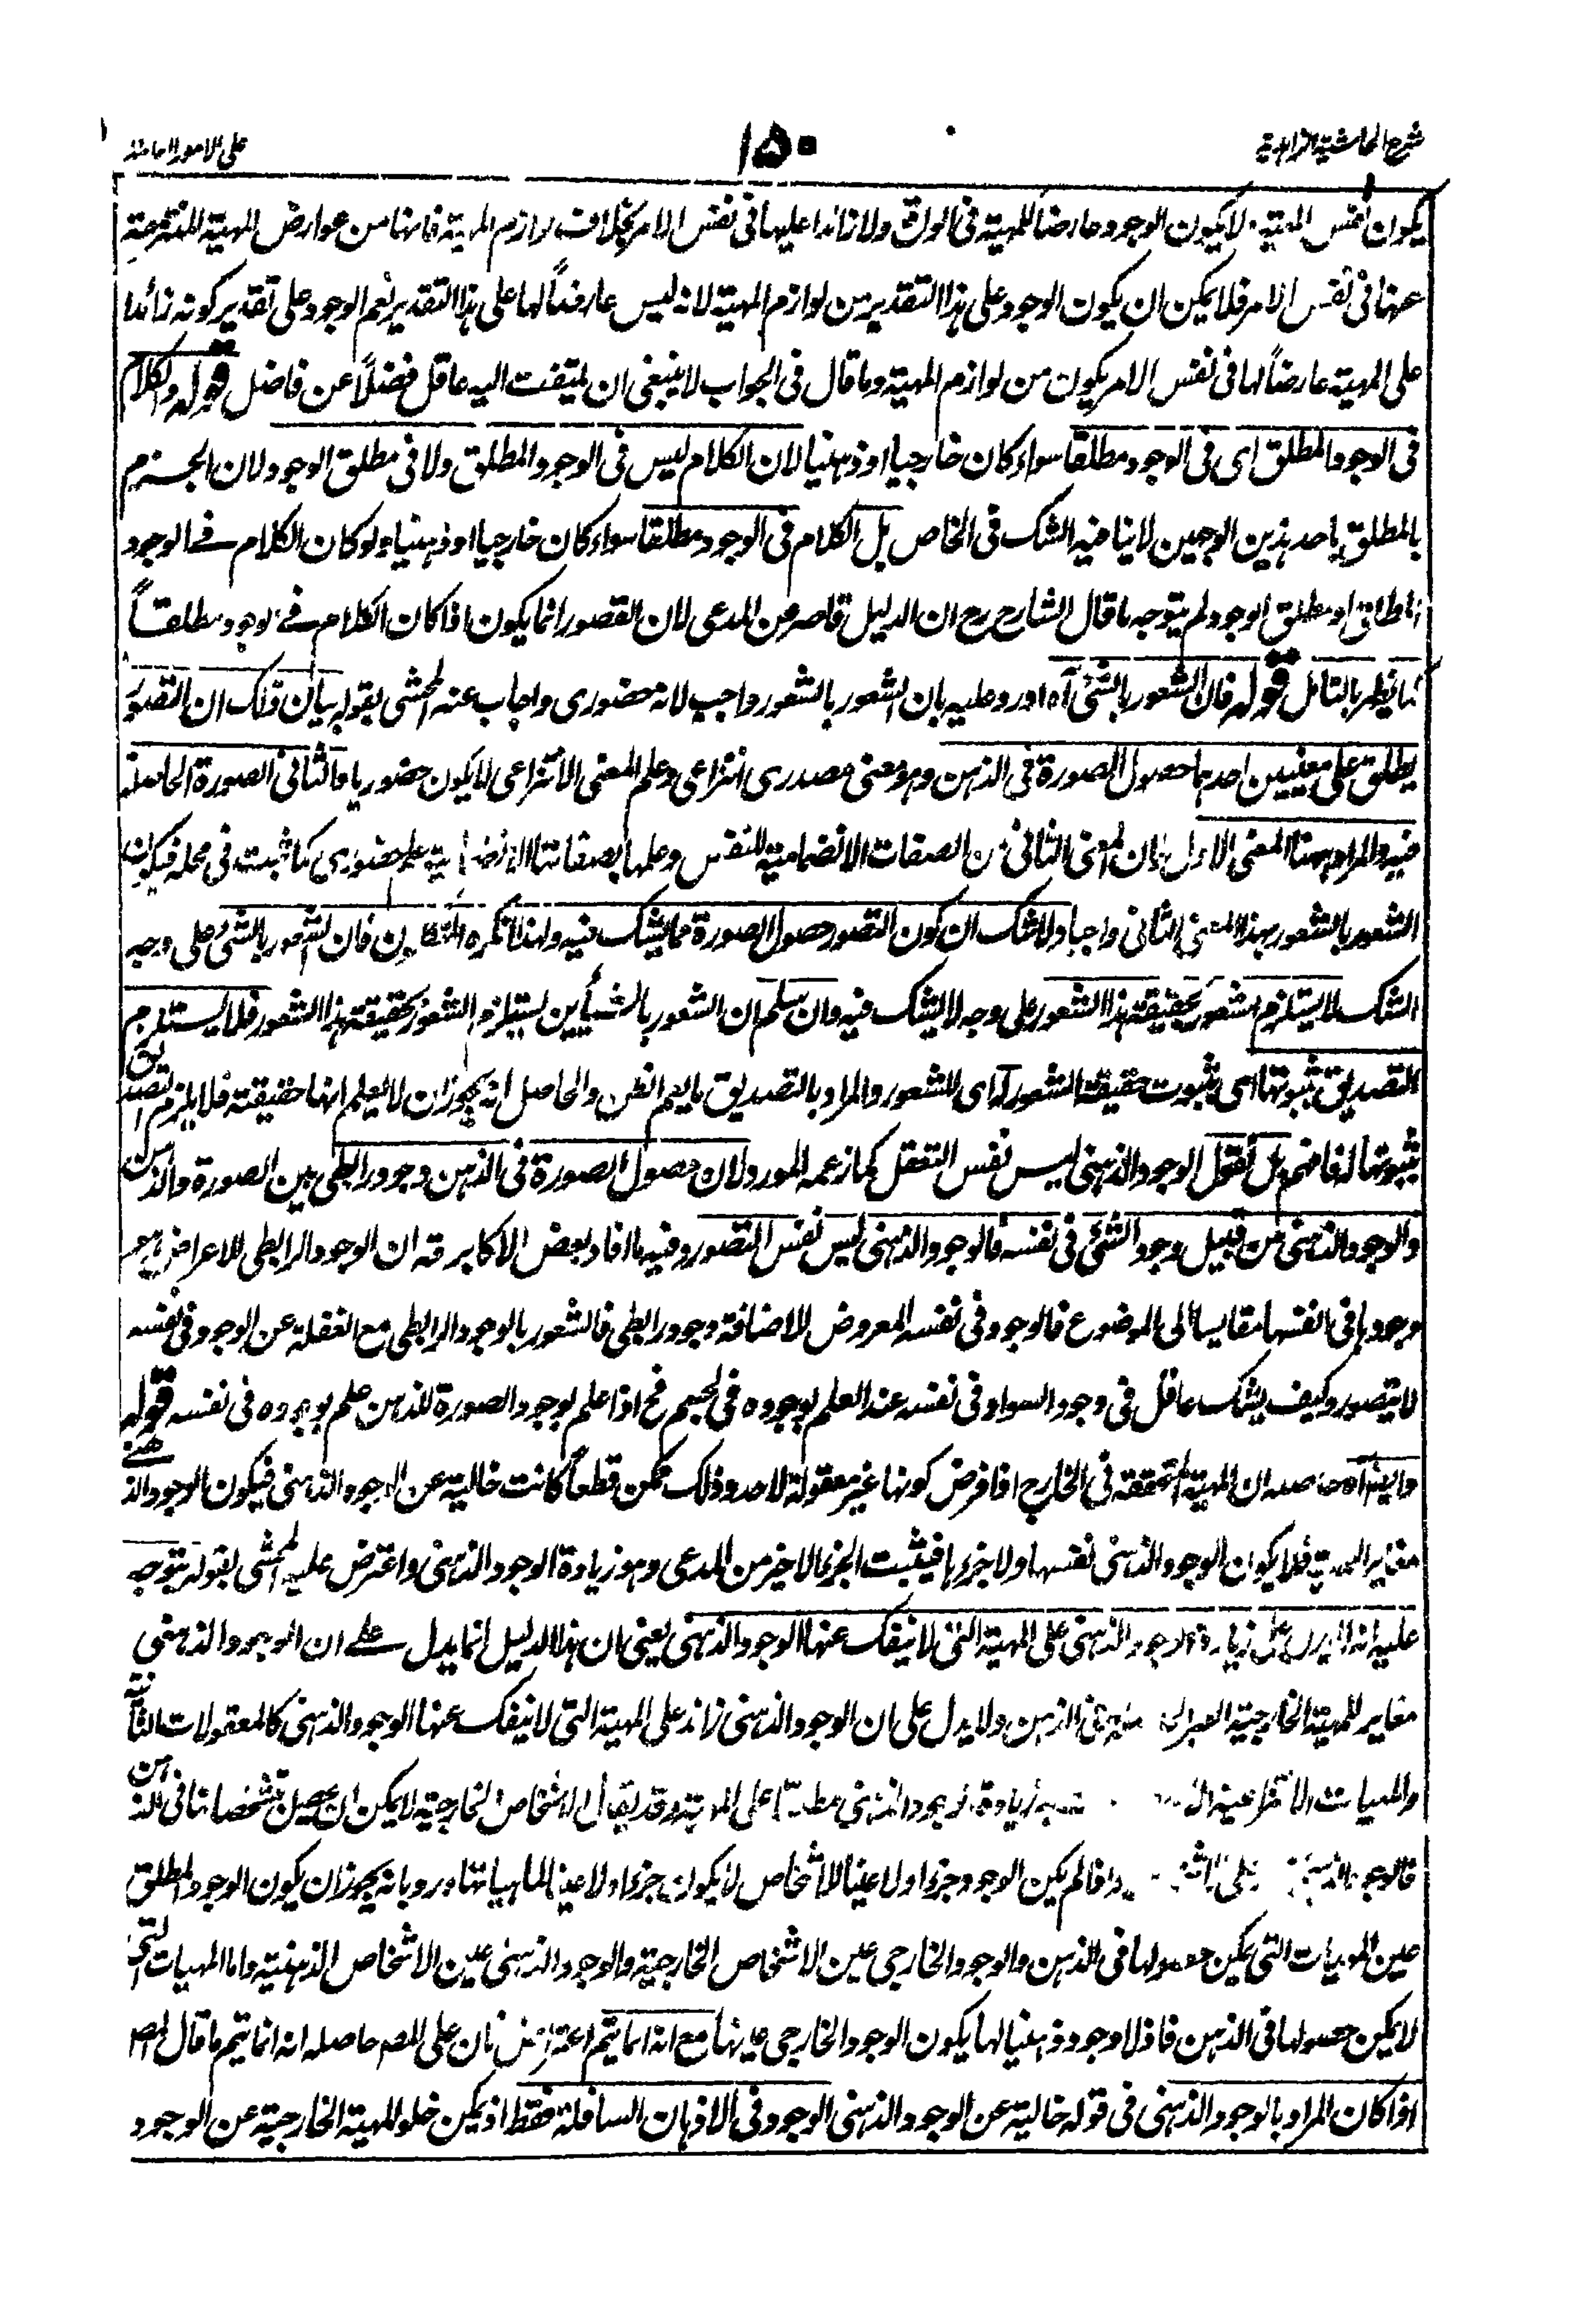 شرح الحاشية الزاهدية
١٥٠
على الامور العامة
يكون نفس المهية لا يكون الوجود عارضا للمهية فى الواقع ولا زائدا عليها فى نفس الامر بخلاف لوازم المهية فانها من عوارض المهية المنتزعة
عنها فى نفس الامر فلا يمكن ان يكون الوجود على هذا التقدير من لوازم المهية لانه ليس عارضاً لها على هذا التقدير نعم الوجود على تقدير كونه زائدا
على المهية عارضاً لها فى نفس الامر يكون من لوازم المهية وما قال فى الجواب لا ينبغى ان يلتفت اليه عاقل فضلاً عن فاضل قوله والكلام
فى الوجود المطلق اى فى الوجود مطلقا سواء كان خارجيا او ذهنيا لان الكلام ليس فى الوجود المطلق ولا فى مطلق الوجود لان الجزم
بالمطلق باحد هذين الوجهين لا ينافيه الشك فى الخاص بل الكلام فى الوجود مطلقا سواء كان خارجيا او ذهنيا ولو كان الكلام فے الوجود
المطلق او مطلق الوجود لم يتوجه ما قال الشارح رح ان الدليل قاصر عن المدعى لان القصور انما يكون اذا كان الكلام فے الوجود مطلقاً
كما يظهر بالتامل قوله فان الشعور بالشئ آه اورد عليه بان الشعور بالشعور واجب لانه حضورى واجاب عنه المحشى بقوله بيان ذلك ان التصور
يطلق على معنيين احدهما حصول الصورة فى الذهن وهو معنى مصدرى انتزاعى وعلم المعنى الانتزاعى لا يكون حضوريا والثانى الصورة الحاصلة
فيه والمراد ههنا المعنى الاول فان المعنى الثانى من الصفات الانضمامية للنفس وعلمها بصفاتها الانضمامية علم حضورى كما ثبت فى محله فيكون
الشعور بالشعور بهذا المعنى الثانى واجبا ولا شك ان كون التصور حصول الصورة مما يشك فيه ولهذا انكره المتكلمون فان الشعور بالشئ على وجه
الشك لا يستلزم الشعور بحقيقة هذا الشعور على وجه لا يشك فيه وان سلم ان الشعور بالشئ يستلزم الشعور بحقيقة هذا الشعور فلا يستلزم
التصديق بثبوتها اى بثبوت حقيقة الشعور له اى للشعور والمراد بالتصديق ما يعم الظن والحاصل انه يجوز ان لا يعلم انها حقيقته فلا يلزم التصديق
بثبوتها له فافهم بل نقول الوجود الذهنى ليس نفس التعقل كما زعمه المورد لان حصول الصورة فى الذهن وجود رابطى بين الصورة والذهن
والوجود الذهنى من قبيل وجود الشئ فى نفسه فالوجود الذهنى ليس نفس التصور وفيه ما افاد بعض الاكابر قه ان الوجود الرابطى للاعراض هو
وجودها فى انفسها مقايسا الى الموضوع فالوجود فى نفسه المعروض للاضافة وجود رابطى فالشعور بالوجود الرابطى مع الغفلة عن الوجود فى نفسه
لا يتصور وكيف يشك عاقل فى وجود السواد فى نفسه عند العلم بوجوده فى الجسم فح اذا علم بوجود الصورة للذهن علم بوجوده فى نفسه قوله
وايضا آه حاصله ان المهية المتحققة فى الخارج اذا فرض كونها غير معقولة لاحد وذلك ممكن قطعاً كانت خالية عن الوجود الذهنى فيكون الوجود الذهنے
مغاير المهية فلا يكون الوجود الذهنى نفسها ولا جزءها فيثبت الجزء الاخير من المدعى وهو زيادة الوجود الذهنى واعترض عليه المحشى بقوله يتوجه
عليه انه لا يدل على زيادة الوجود الذهنى على المهية التى لا ينفك عنها الوجود الذهنى يعنى ان هذا الدليل انما يدل علے ان الوجود الذهنى
مغاير للمهية الخارجية الغير فى الذهن ولا يدل على ان الوجود الذهنى زائد على المهية التى لا ينفك عنها الوجود الذهنى كالمعقولات الثانية
والمهيات الانتزاعية زيادة الوجود الذهنى مطلقا على المهية وقد يقال ان الاشخاص الخارجية لا يمكن ان يحصل تشخصاتها فى الذهن
فالوجود الذهنى واذا لم يكن الوجود جزءا ولا عينا للاشخاص لا يكون جزءا ولا عينا لماهياتها ورد بانه يجوز ان يكون الوجود المطلق
عين المهيات التى يمكن حصولها فى الذهن والوجود الخارجى عين الاشخاص الخارجية والوجود الذهنى عين الاشخاص الذهنية واما المهيات التى
لا يمكن حصولها فى الذهن فاذ لا وجود ذهنيا لها يكون الوجود الخارجى عينها مع انه انما يتم اعتراض ثان على المص حاصله انه انما يتم ما قال المص
اذا كان المراد بالوجود الذهنى فى قوله خالية عن الوجود الذهنى الوجود فى الاذهان السافلة فقط اذ يمكن خلو المهية الخارجية عن الوجود